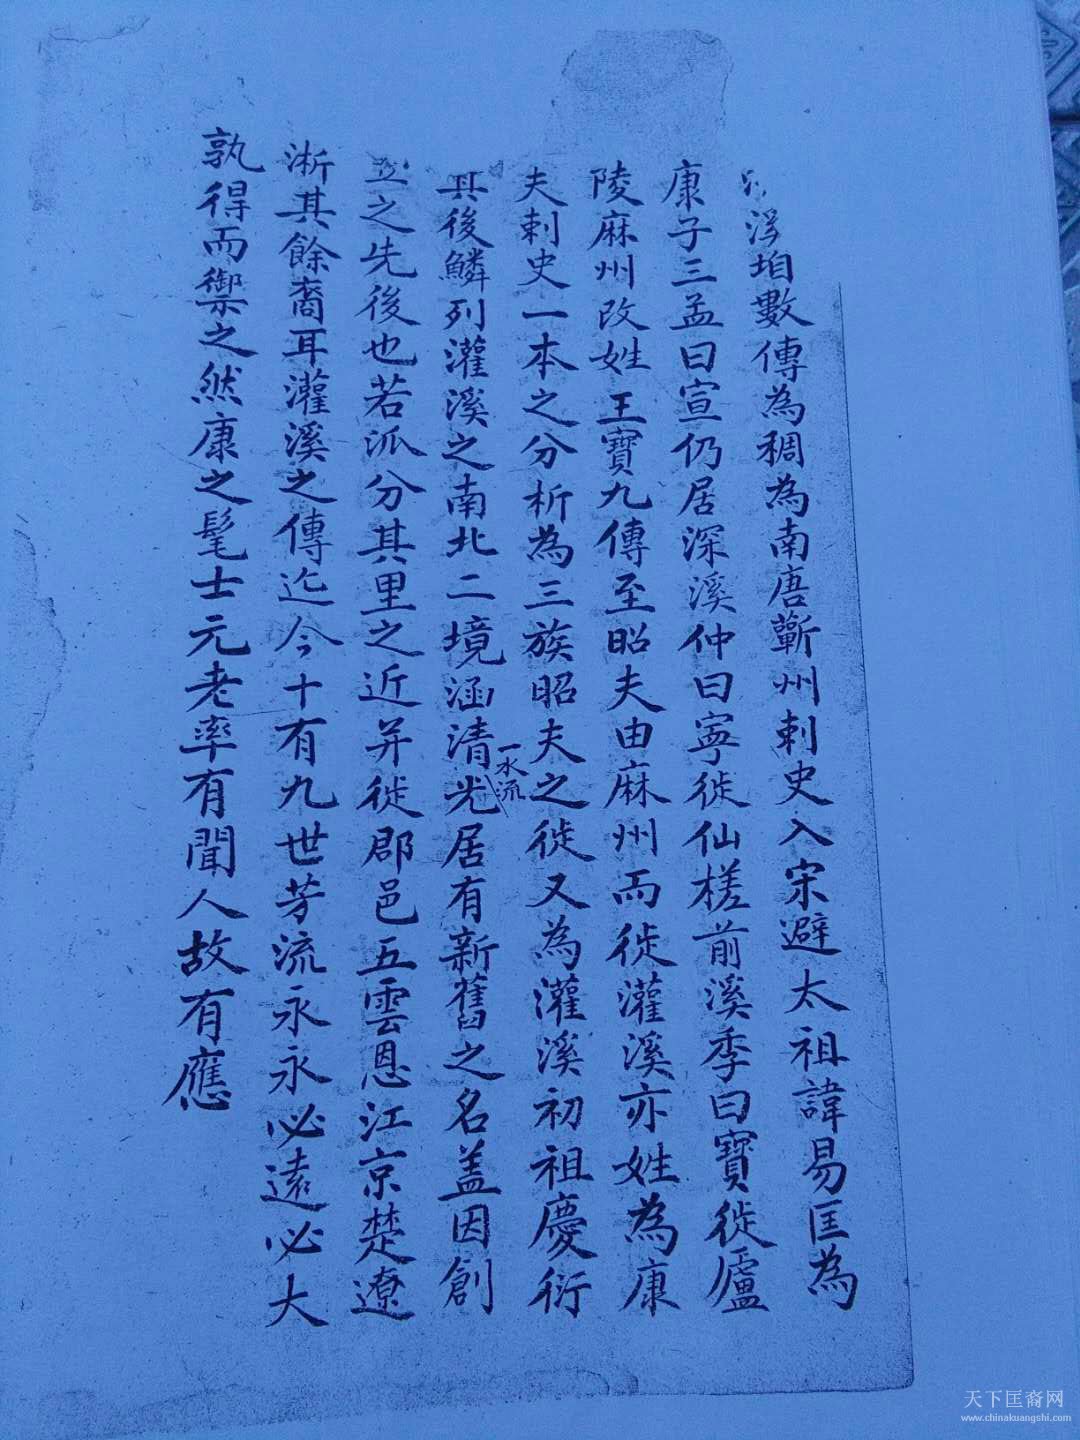 浮珀數傳為稠為南唐蘄州刺史入宋避太祖諱易匡為
康子三孟曰宣仍居深溪仲曰寧徙仙槎前溪季曰寶徙廬
陵麻州改姓王寶九傳至昭夫由麻州而徙灌溪亦姓為康
夫刺史一本之分析為三族昭夫之徙又為灌溪初祖慶衍
其後鱗列灌溪之南北二境涵清光一水流居有新舊之名盖因創
立之先後也若派分其里之近并徙郡邑五雲恩江京楚遼
淅其餘裔耳灌溪之傳迄今十有九世芳流永永必遠必大
孰得而禦之然康之髦士元老率有聞人故有應
天下匡裔网
www.chinakuangshi.com